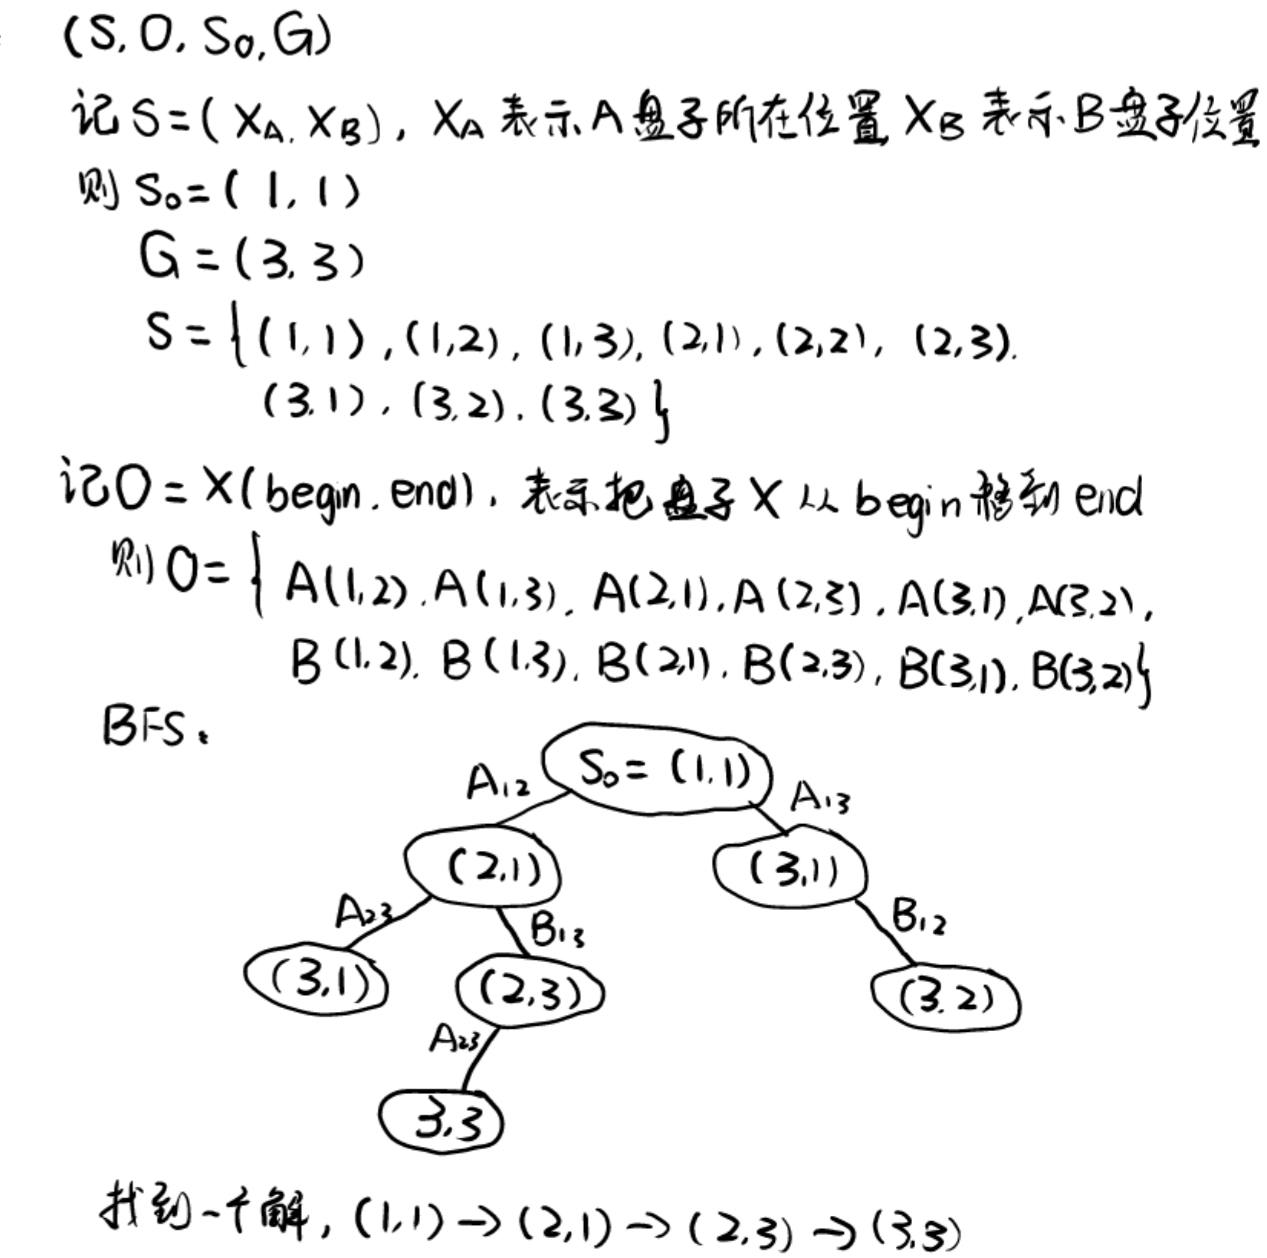 (S, O, S₀, G)
记 S=(X_A, X_B), X_A 表示A盘子所在位置 X_B 表示B盘子位置
则 S₀=(1,1)
G=(3,3)
S={(1,1),(1,2),(1,3),(2,1),(2,2),(2,3).
(3,1),(3,2),(3,3)}
记O=X(begin, end), 表示把盘子X从begin移到end
则O={A(1,2),A(1,3),A(2,1),A(2,3),A(3,1),A(3,2),
B(1,2),B(1,3),B(2,1),B(2,3),B(3,1),B(3,2)}
BFS:
S₀=(1,1)
A₁₂ A₁₃
(2,1) (3,1)
A₂₃ B₁₃ B₁₂
(3,1) (2,3) (3,2)
A₂₃
3,3
找到一个解, (1,1)→(2,1)→(2,3)→(3,3)